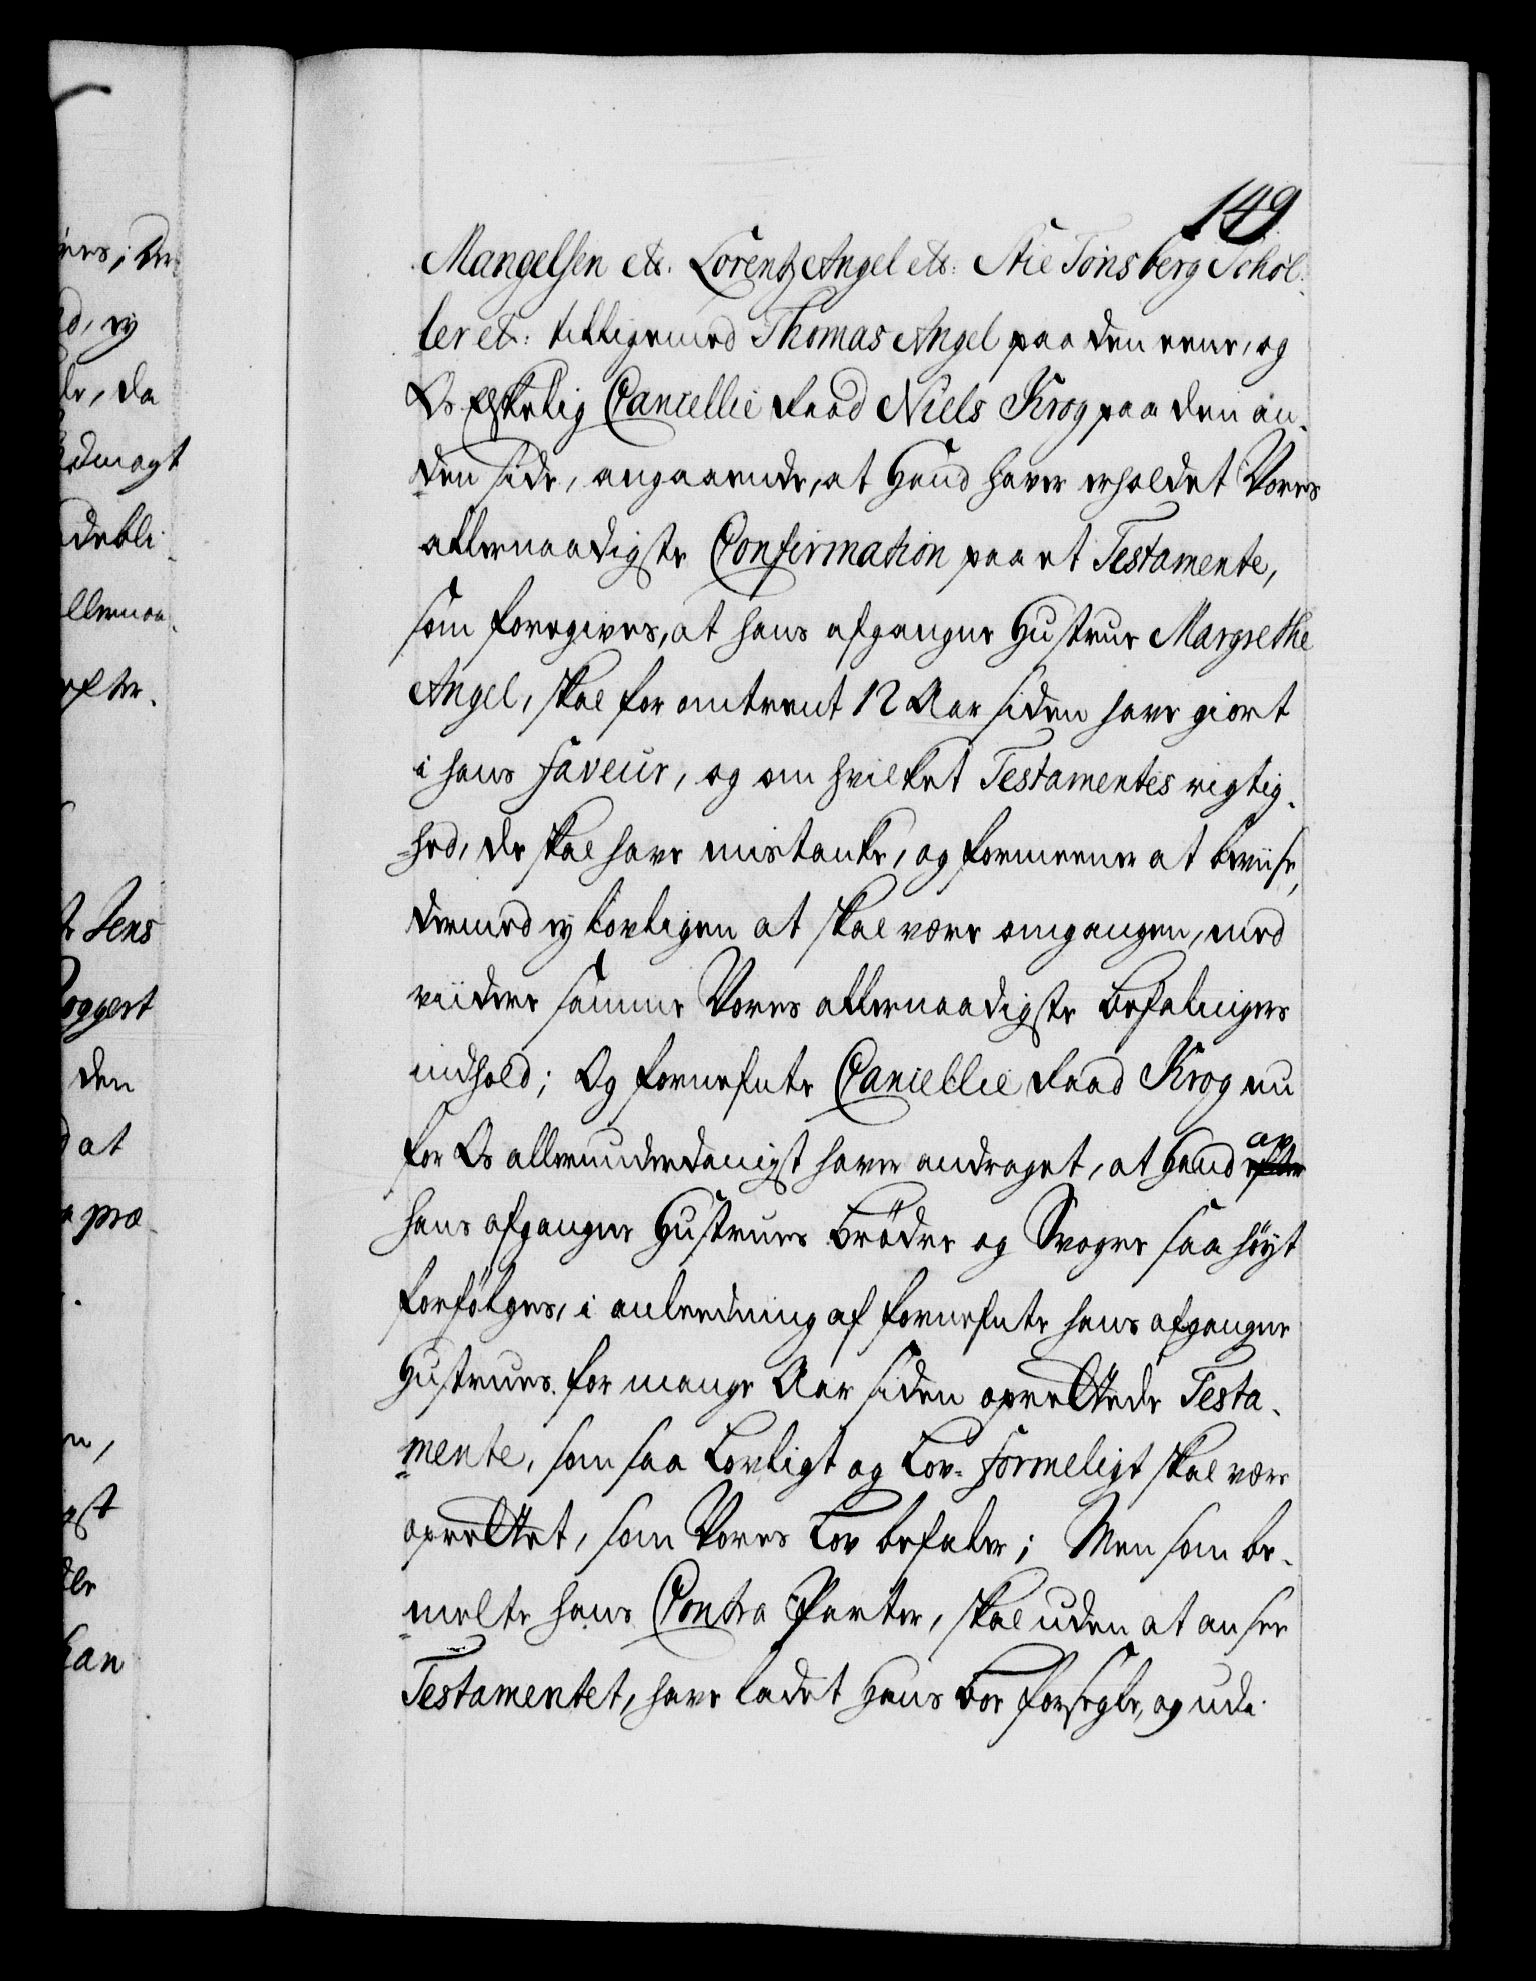 149
Mangelsen etc. Lorentz Angel etc: Stie Tønsberg Schøl-
ler etc: tilligemed Thomas Angel paa den eene, og
Os Elskelig Cancellie Raad Niels Krog paa den an-
den side, angaaende, at Hand haver erholdet Vores
allernaadigste Confirmation paa et Testamente,
som foregives, at hans afgangne Hustrue Margrethe
Angel, skal for omtrent 12 Aar siden have giort
i hans faveur, og om hvilket Testamentes rigtig-
hed, de skal have mistanke, og formeener at beviise,
dermed ej lovligen at skal være omgangen, med
viidere samme Vores allernaadigste Befalnigers
indhold; Og fornefnte Cancellie Raad Krog nu
for Os allerunderdanigst haver andraget, at Hand efter av
hans afgangne Hustrues Brødre og Svogre saa høyt
forfølges, i anleedning af fornefnte hans afgangne
Hustrues for mange Aar siden oprettede Testa-
mente, som saa Lovligt og Lov-formeligt skal være
oprettet, som Vores Lov befaler; Men som be-
melte hans Contra Parter, skal uden at ansee
Testamentet, have ladet Hans Boe forsegle, og udi
ej
da
Jens
den
at
præ-